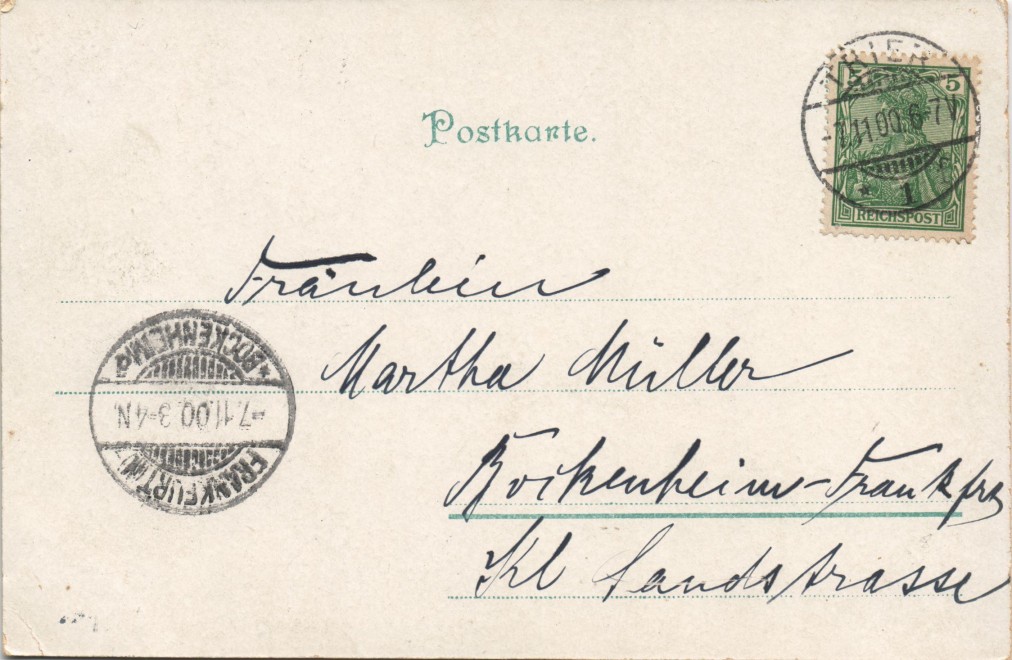 Postkarte.
TRIER
5 5
-7.11.00.6-7V
* 1 f
REICHSPOST
Fräulein
Martha Müller
Bockenheim-Frankfrt
Kl Sandstrasse
*BOCKENHEIM*
-7.11.00.3-4N.
FRANKFURT (M.)